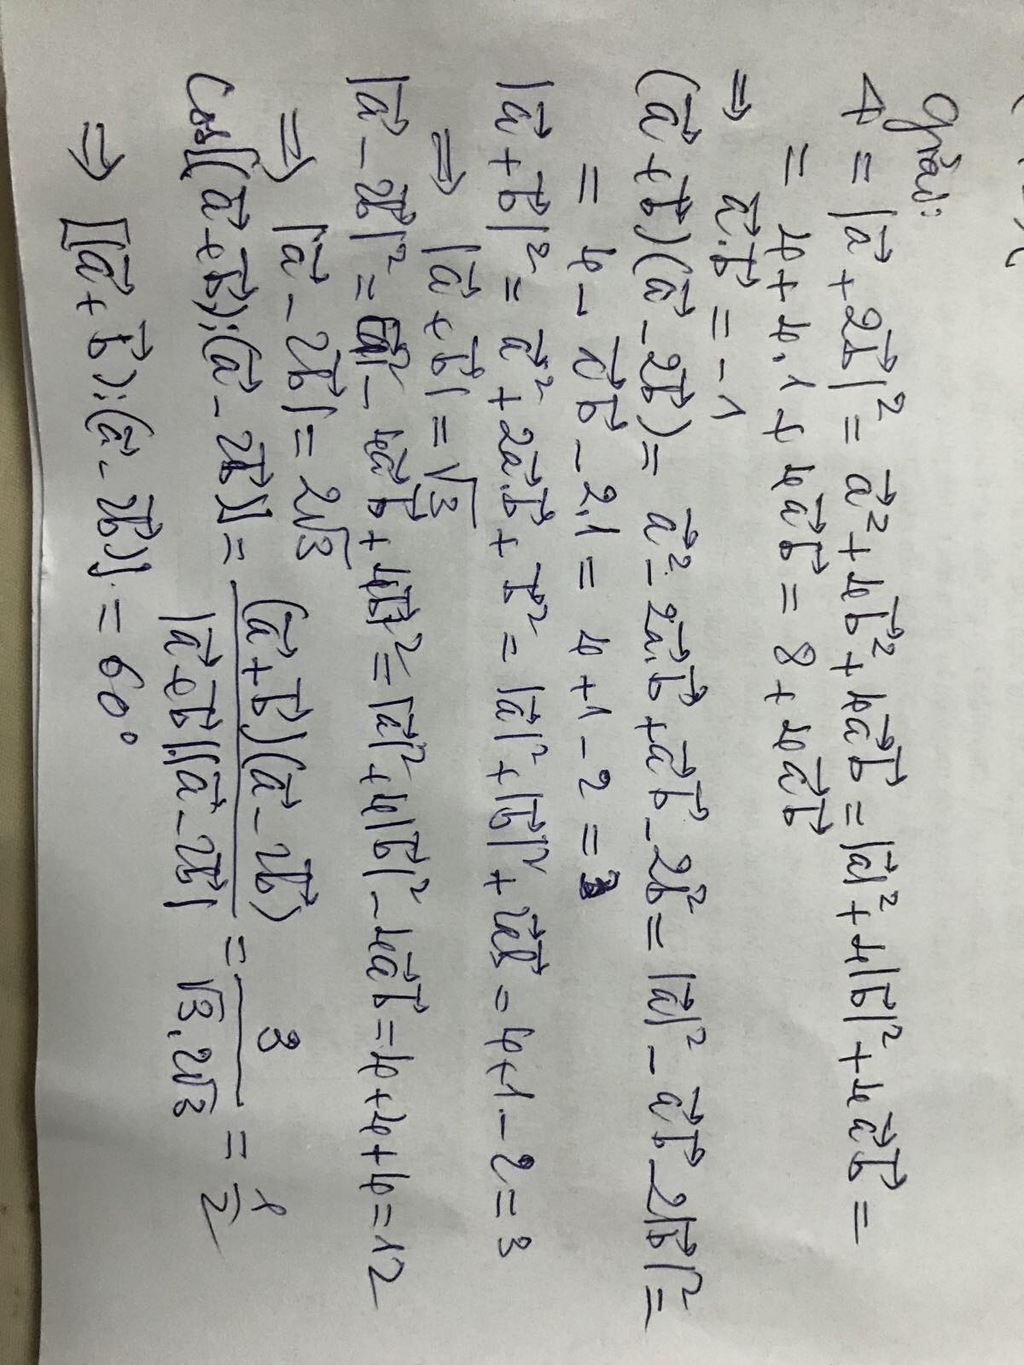 Giải:
4 = |a⃗ + 2b⃗|² = a⃗² + 4b⃗² + 4a⃗b⃗ = |a⃗|² + 4|b⃗|² + 4a⃗b⃗ =
= 4 + 4.1 + 4a⃗b⃗ = 8 + 4a⃗b⃗
⇒ a⃗.b⃗ = -1
(a⃗ + b⃗)(a⃗ - 2b⃗) = a⃗² - 2a⃗.b⃗ + a⃗b⃗ - 2b⃗² = |a⃗|² - a⃗b⃗ - 2|b⃗|² =
= 4 - a⃗b⃗ - 2.1 = 4 + 1 - 2 = 3
|a⃗ + b⃗|² = a⃗² + 2a⃗.b⃗ + b⃗² = |a⃗|² + |b⃗|² + 2a⃗b⃗ = 4 + 1 - 2 = 3
⇒ |a⃗ + b⃗| = √3
|a⃗ - 2b⃗|² = a⃗² - 4a⃗b⃗ + 4b⃗² = |a⃗|² + 4|b⃗|² - 4a⃗b⃗ = 4 + 4 + 4 = 12
⇒ |a⃗ - 2b⃗| = 2√3
Cos[(a⃗ + b⃗);(a⃗ - 2b⃗)] = (a⃗ + b⃗)(a⃗ - 2b⃗) / |a⃗ + b⃗|.|a⃗ - 2b⃗| = 3 / √3.2√3 = 1/2
⇒ [(a⃗ + b⃗);(a⃗ - 2b⃗)] = 60°